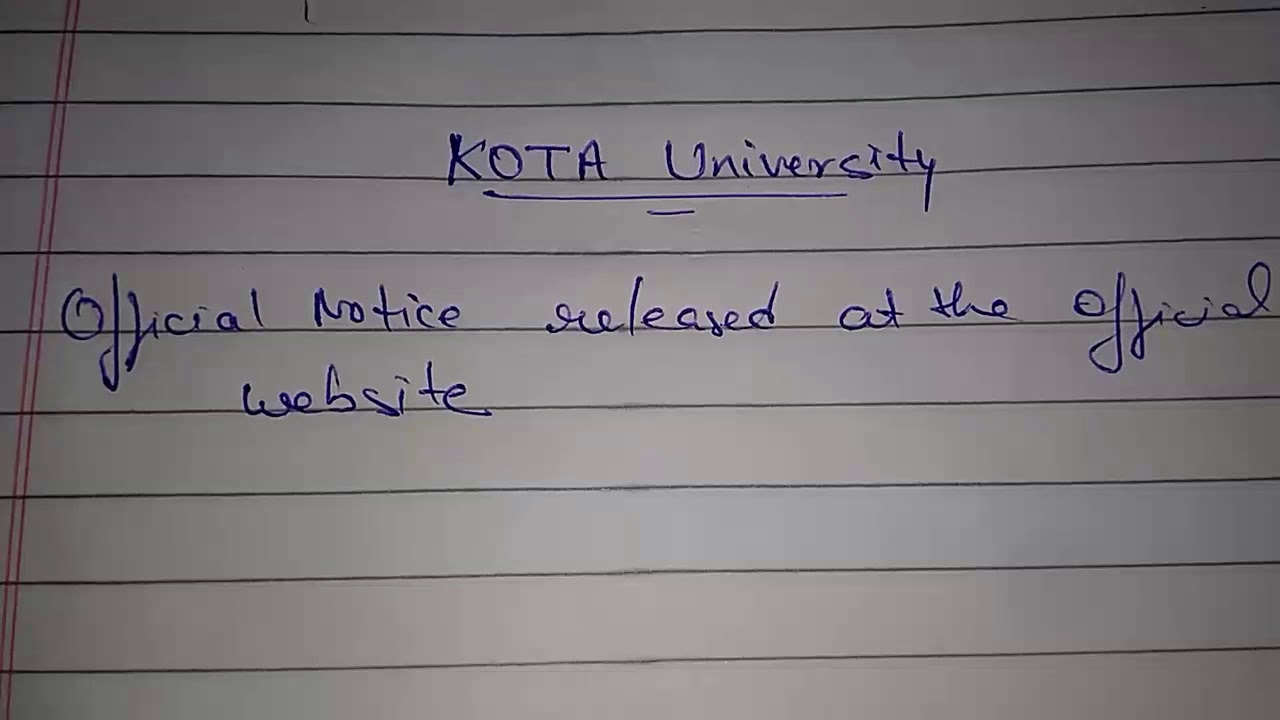 KOTA University
Official Notice released at the Official
website